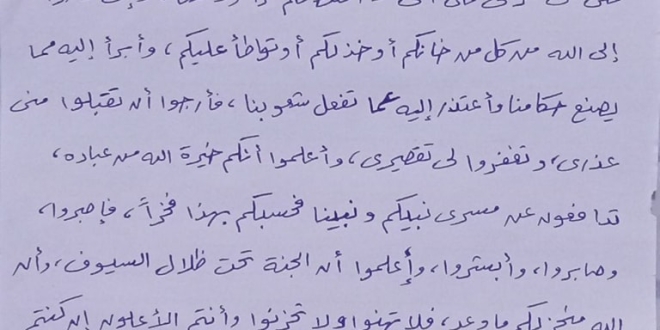 إلى الله من كل من خانكم أو خذلكم أو تواطأ عليكم، وأبرأ إليه مما
يصنع حكامنا وأعتذر إليه عما تفعل شعوبنا، فأرجوا أن تقبلوا منى
عذرى، وتغفروا لى تقصيرى، وأعلموا أنكم خيرة الله من عباده،
تدافعون عن مسرى نبيكم ونبينا فحسبكم بهذا فخراً، فإصبروا،
وصابروا، وأبشروا، وإعلموا أن الجنة تحت ظلال السيوف، وأن
الله منجز لكم ما وعد، فلا تهنوا ولا تحزنوا وأنتم الأعلون إن كنتم